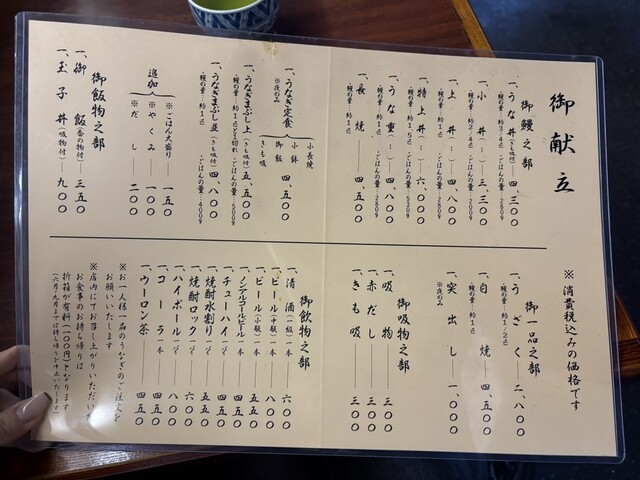 御献立
御鰻之部
一、うな丼(きも吸付)―四、三〇〇
・鰻の量：約3/4匹 ・ごはんの量：280g
一、小丼(〃)―三、三〇〇
・鰻の量：約2/4匹 ・ごはんの量：200g
一、上丼(〃)―四、八〇〇
・鰻の量：約1匹 ・ごはんの量：280g
一、特上丼(〃)―六、〇〇〇
・鰻の量：約1.5匹 ・ごはんの量：
一、うな重(〃)―四、八〇〇
・鰻の量：約1匹 ・ごはんの量：280g
一、長焼―四、五〇〇
・鰻の量：約1匹
一、うなぎ定食 四、五〇〇
※夜のみ
小長焼
小鉢
御飯
きも吸
一、うなぎまぶし上(きも吸付)五、五〇〇
・鰻の量：約1匹と1切れ ・ごはんの量：500g
一、うなぎまぶし並(きも吸付)四、八〇〇
・鰻の量：約1匹 ・ごはんの量：400g
追加
※ごはん大盛り―一五〇
※やくみ―一〇〇
※だし―二〇〇
御飯物之部
一、御飯(香の物付)―三五〇
一、玉子丼(吸物付)―九〇〇
※消費税込みの価格です
御一品之部
一、うざく―二、八〇〇
・鰻の量：約1/2匹
一、白焼―四、五〇〇
・鰻の量：約1匹
一、突出し―一、〇〇〇
※夜のみ
御吸物之部
一、吸物―三〇〇
一、赤だし―三〇〇
一、きも吸―三〇〇
御飲物之部
一、清酒(一級)一本―六〇〇
一、ビール(中瓶)一本―八〇〇
一、ビール(小瓶)一本―五五〇
一、ノンアルコールビール一本―四五〇
一、チューハイ一パイ―四五〇
一、焼酎水割り一パイ―五五〇
一、焼酎ロック一パイ―六〇〇
一、ハイボール一パイ―八〇〇
一、コーラ一本―四五〇
一、ウーロン茶―四五〇
※お一人様一品のうなぎのご注文を
お願いいたします
※店内にてお召し上がりいただい
お食事のお持ち帰りは
折箱が有料(一〇〇円)となります
(六月〜九月までは持ち帰りを中止いたします)